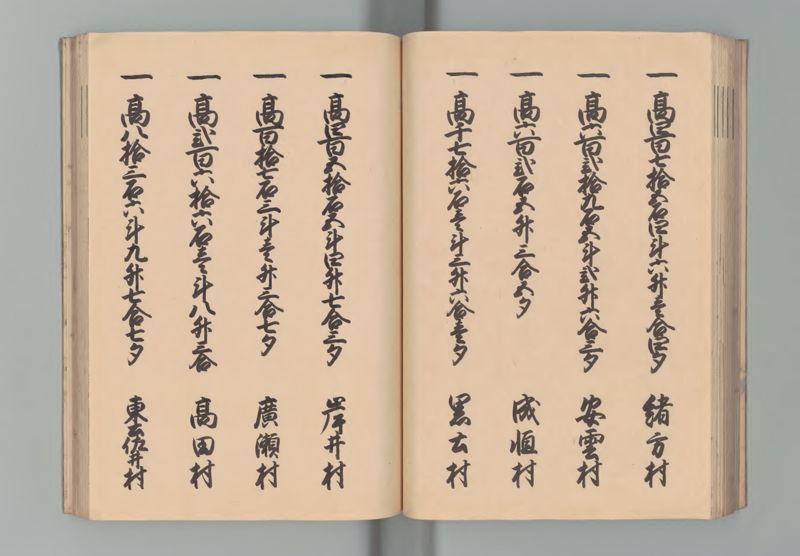 一 高四百七拾五石四斗六升壱合四夕 緒方村
一 高六百弐拾九石五斗弐升六合三夕 安雲村
一 高六百弐石五升三合五夕 成恒村
一 高千七拾六石壱斗三升六合壱夕 黒土村
一 高四百五拾石五斗四升七合三夕 岸井村
一 高百拾七石三斗壱升二合七夕 廣瀬村
一 高弐百六拾六石壱斗八升三合 高田村
一 高八拾三石六斗九升七合七夕 東佐井村